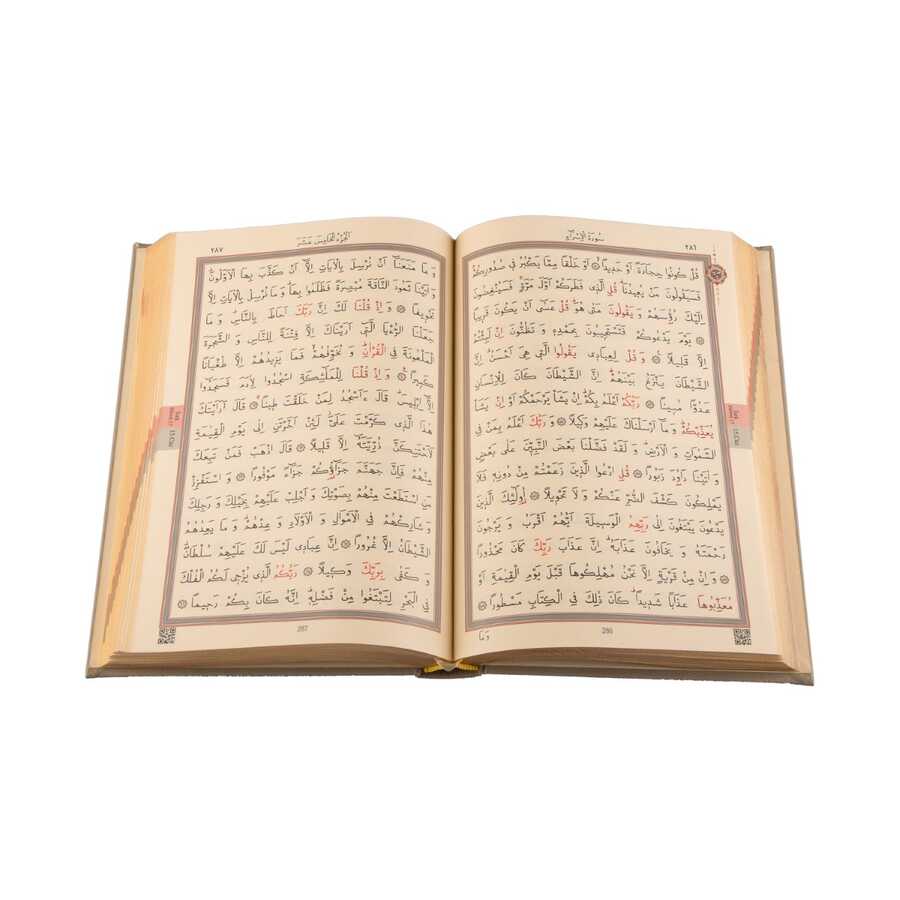 ٢٨٦
سورة الإسراء
قُلْ كُونُوا حِجَارَةً اَوْ حَدِيدًا ۞ اَوْ خَلْقًا مِمَّا يَكْبُرُ فٖي صُدُورِكُمْ
فَسَيَقُولُونَ مَنْ يُعٖيدُنَا قُلِ الَّذٖي فَطَرَكُمْ اَوَّلَ مَرَّةٍ فَسَيُنْغِضُونَ
اِلَيْكَ رُؤُسَهُمْ وَ يَقُولُونَ مَتٰى هُوَ قُلْ عَسٰٓى اَنْ يَكُونَ قَرٖيبًا
۞ يَوْمَ يَدْعُوكُمْ فَتَسْتَجٖيبُونَ بِحَمْدِهٖ وَ تَظُنُّونَ اِنْ لَبِثْتُمْ
اِلَّا قَلٖيلًا ۞ وَ قُلْ لِعِبَادٖي يَقُولُوا الَّتٖي هِيَ اَحْسَنُ اِنَّ
الشَّيْطَانَ يَنْزَغُ بَيْنَهُمْ اِنَّ الشَّيْطَانَ كَانَ لِلْاِنْسَانِ
عَدُوًّا مُبٖينًا ۞ رَبُّكُمْ اَعْلَمُ بِكُمْ اِنْ يَشَأْ يَرْحَمْكُمْ اَوْ اِنْ يَشَأْ
يُعَذِّبْكُمْ وَ مَٓا اَرْسَلْنَاكَ عَلَيْهِمْ وَكٖيلًا ۞ وَ رَبُّكَ اَعْلَمُ بِمَنْ فِي
السَّمٰوَاتِ وَ الْاَرْضِ وَ لَقَدْ فَضَّلْنَا بَعْضَ النَّبِيّٖنَ عَلٰى بَعْضٍ
وَ اٰتَيْنَا دَاوُدَ زَبُورًا ۞ قُلِ ادْعُوا الَّذٖينَ زَعَمْتُمْ مِنْ دُونِهٖ فَلَا
يَمْلِكُونَ كَشْفَ الضُّرِّ عَنْكُمْ وَ لَا تَحْوٖيلًا ۞ اُولٰٓئِكَ الَّذٖينَ
يَدْعُونَ يَبْتَغُونَ اِلٰى رَبِّهِمُ الْوَسٖيلَةَ اَيُّهُمْ اَقْرَبُ وَ يَرْجُونَ
رَحْمَتَهُ وَ يَخَافُونَ عَذَابَهُ اِنَّ عَذَابَ رَبِّكَ كَانَ مَحْذُورًا
۞ وَ اِنْ مِنْ قَرْيَةٍ اِلَّا نَحْنُ مُهْلِكُوهَا قَبْلَ يَوْمِ الْقِيٰمَةِ اَوْ
مُعَذِّبُوهَا عَذَابًا شَدٖيدًا كَانَ ذٰلِكَ فِي الْكِتَابِ مَسْطُورًا ۞
286
وَمَا
الجزء الخامس عشر
٢٨٧
وَ مَا مَنَعَنَٓا اَنْ نُرْسِلَ بِالْاٰيَاتِ اِلَّٓا اَنْ كَذَّبَ بِهَا الْاَوَّلُونَ
وَ اٰتَيْنَا ثَمُودَ النَّاقَةَ مُبْصِرَةً فَظَلَمُوا بِهَا وَ مَا نُرْسِلُ بِالْاٰيَاتِ اِلَّا
تَخْوٖيفًا ۞ وَ اِذْ قُلْنَا لَكَ اِنَّ رَبَّكَ اَحَاطَ بِالنَّاسِ وَ مَا
جَعَلْنَا الرُّءْيَا الَّتٖٓي اَرَيْنَاكَ اِلَّا فِتْنَةً لِلنَّاسِ وَ الشَّجَرَةَ
الْمَلْعُونَةَ فِي الْقُرْاٰنِ وَ نُخَوِّفُهُمْ فَمَا يَزٖيدُهُمْ اِلَّا طُغْيَانًا
كَبٖيرًا ۞ وَ اِذْ قُلْنَا لِلْمَلٰٓئِكَةِ اسْجُدُوا لِاٰدَمَ فَسَجَدُٓوا
اِلَّٓا اِبْلٖيسَ قَالَ ءَاَسْجُدُ لِمَنْ خَلَقْتَ طٖينًا ۞ قَالَ اَرَاَيْتَكَ
هٰذَا الَّذٖي كَرَّمْتَ عَلَيَّ لَئِنْ اَخَّرْتَنِ اِلٰى يَوْمِ الْقِيٰمَةِ
لَاَحْتَنِكَنَّ ذُرِّيَّتَهُٓ اِلَّا قَلٖيلًا ۞ قَالَ اذْهَبْ فَمَنْ تَبِعَكَ
مِنْهُمْ فَاِنَّ جَهَنَّمَ جَزَٓاؤُكُمْ جَزَٓاءً مَوْفُورًا ۞ وَ اسْتَفْزِزْ
مَنِ اسْتَطَعْتَ مِنْهُمْ بِصَوْتِكَ وَ اَجْلِبْ عَلَيْهِمْ بِخَيْلِكَ وَ رَجِلِكَ
وَ شَارِكْهُمْ فِي الْاَمْوَالِ وَ الْاَوْلَادِ وَ عِدْهُمْ وَ مَا يَعِدُهُمُ
الشَّيْطَانُ اِلَّا غُرُورًا ۞ اِنَّ عِبَادٖي لَيْسَ لَكَ عَلَيْهِمْ سُلْطَانٌ
وَ كَفٰى بِرَبِّكَ وَكٖيلًا ۞ رَبُّكُمُ الَّذٖي يُزْجٖي لَكُمُ الْفُلْكَ
فِي الْبَحْرِ لِتَبْتَغُوا مِنْ فَضْلِهٖ اِنَّهُ كَانَ بِكُمْ رَحٖيمًا ۞
287